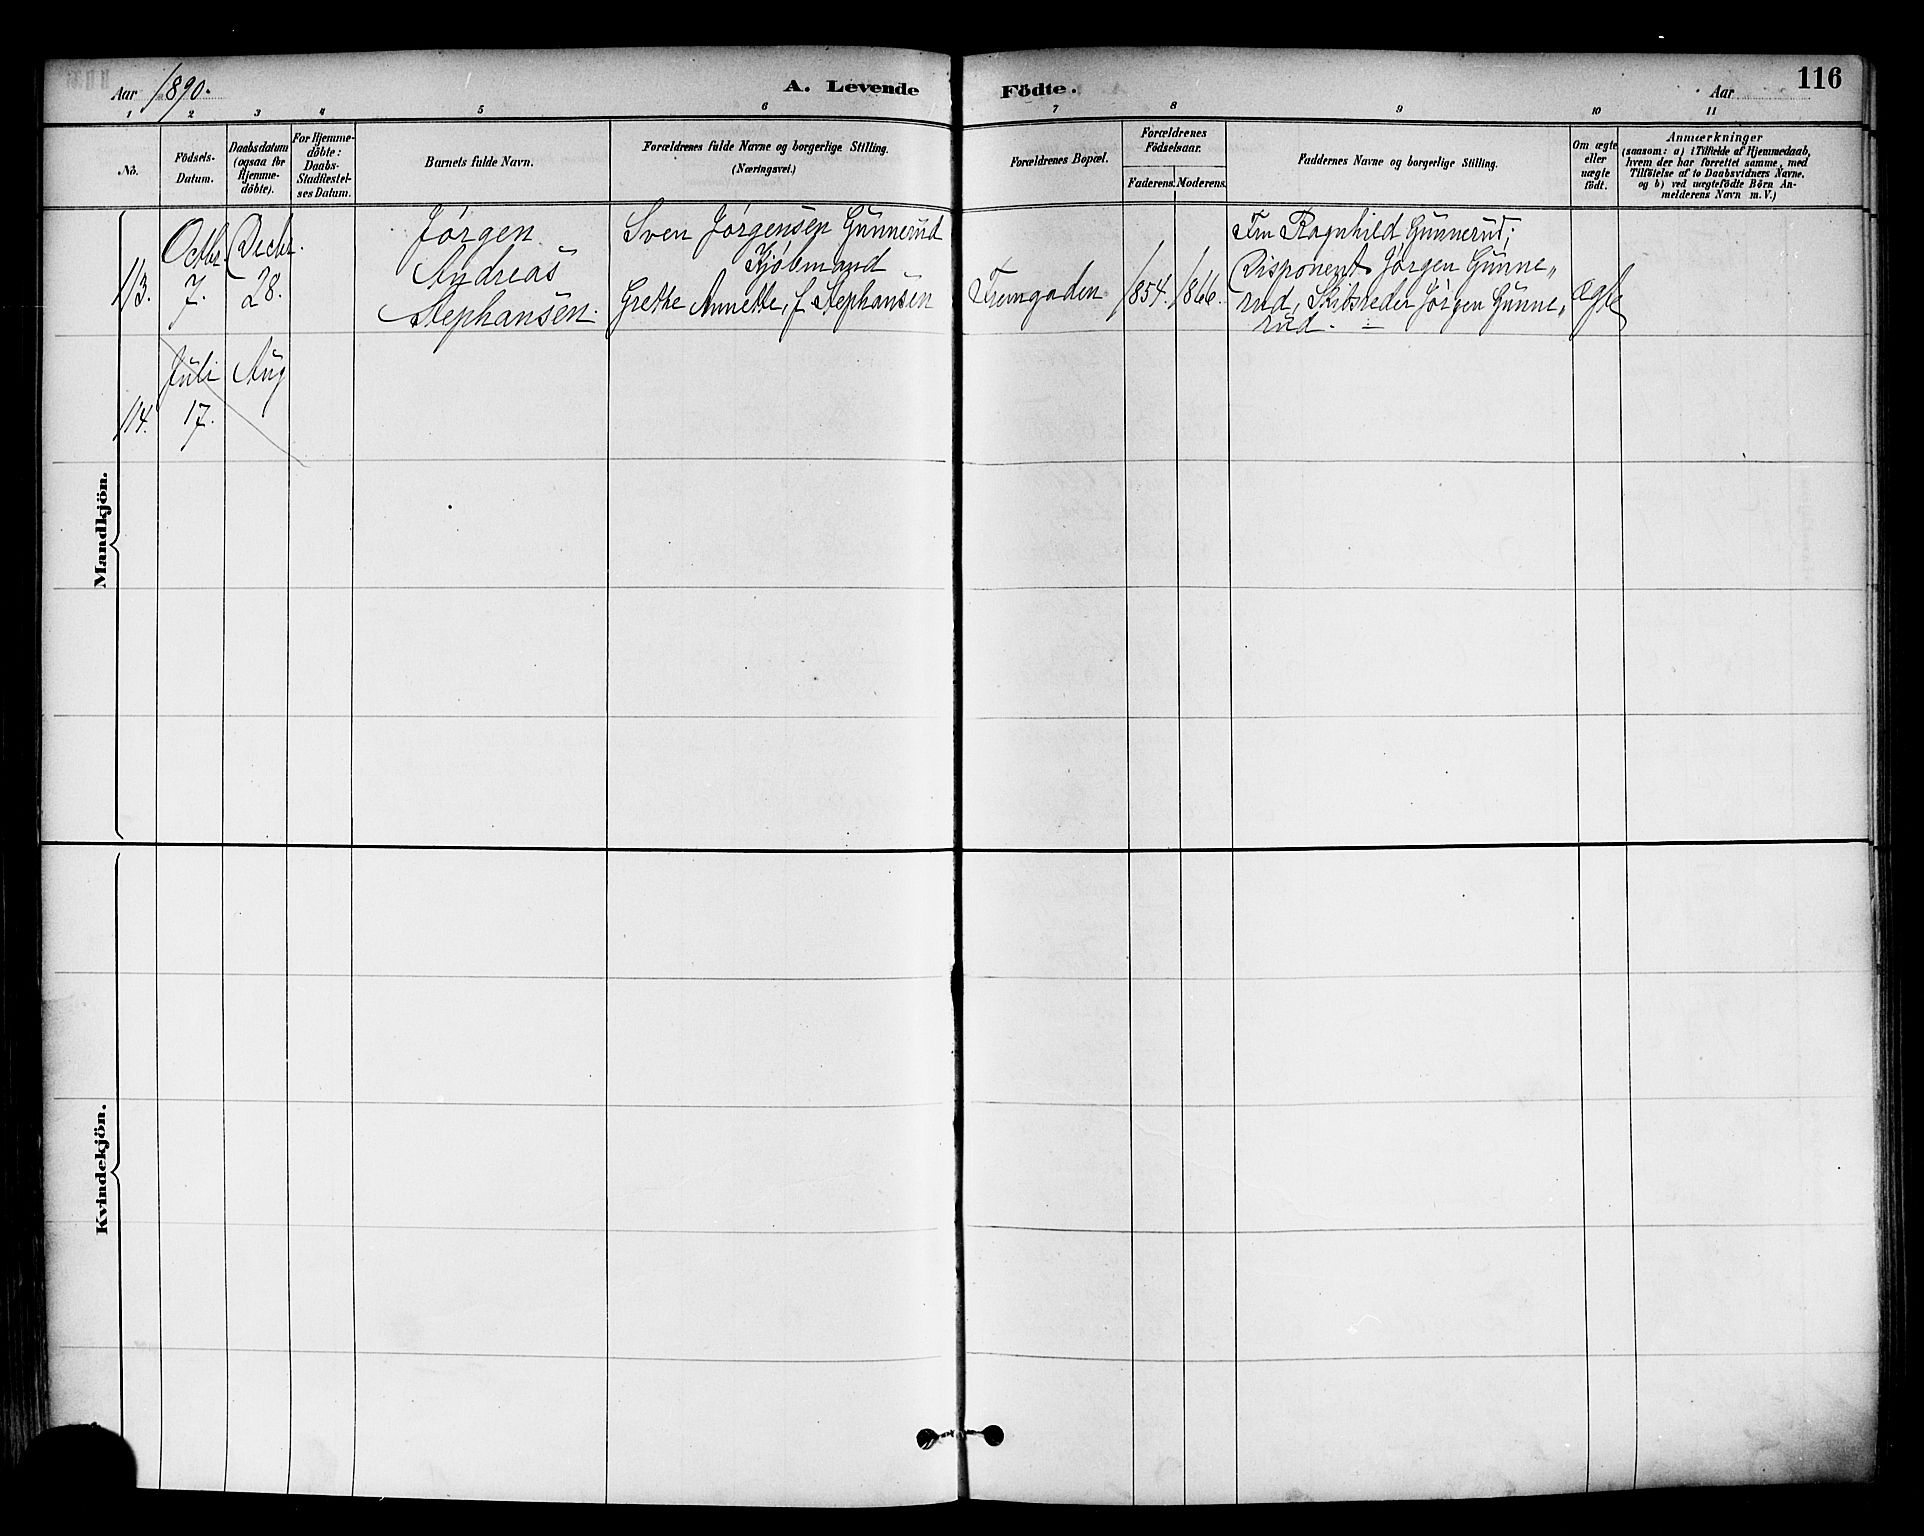 Aar 1890.
A. Levende Födte.
Aar
116
1 2 3 4 5 6 7 8 9 10 11
No.
Födsels-
Datum.
Daabsdatum
(ogsaa for
Hjemme-
döbte).
For Hjemme-
döbte:
Daabs-
Stadfæstel-
ses Datum.
Barnets fulde Navn.
Forældrenes fulde Navne og borgerlige Stilling.
(Næringsvei.)
Forældrenes Bopæl.
Forældrenes
Födselsaar.
Faderens.
Moderens.
Faddernes Navne og borgerlige Stilling.
Om ægte
eller
uægte
födt.
Anmærkninger
(saasom: a) i Tilfælde af Hjemmedaab,
hvem der har forrettet samme, med
Tilföielse af to Daabsvidners Navne,
og b) ved uægtefödte Börn An-
melderens Navn m. V.)
Mandkjön.
113.
Octbr.
7.
Decbr.
28.
Jørgen
Andreas
Stephansen.
Sven Jørgensen Gunnerud
Kjøbmand
Grethe Annette, f Stephansen
Tremgaden
1854.
1866.
Fru Ragnhild Gunnerud;
Disponent Jørgen Gunne„
rud, Skibsreder Jørgen Gunne„
rud. –
ægte
114.
Juli
17.
Aug
Kvindekjön.